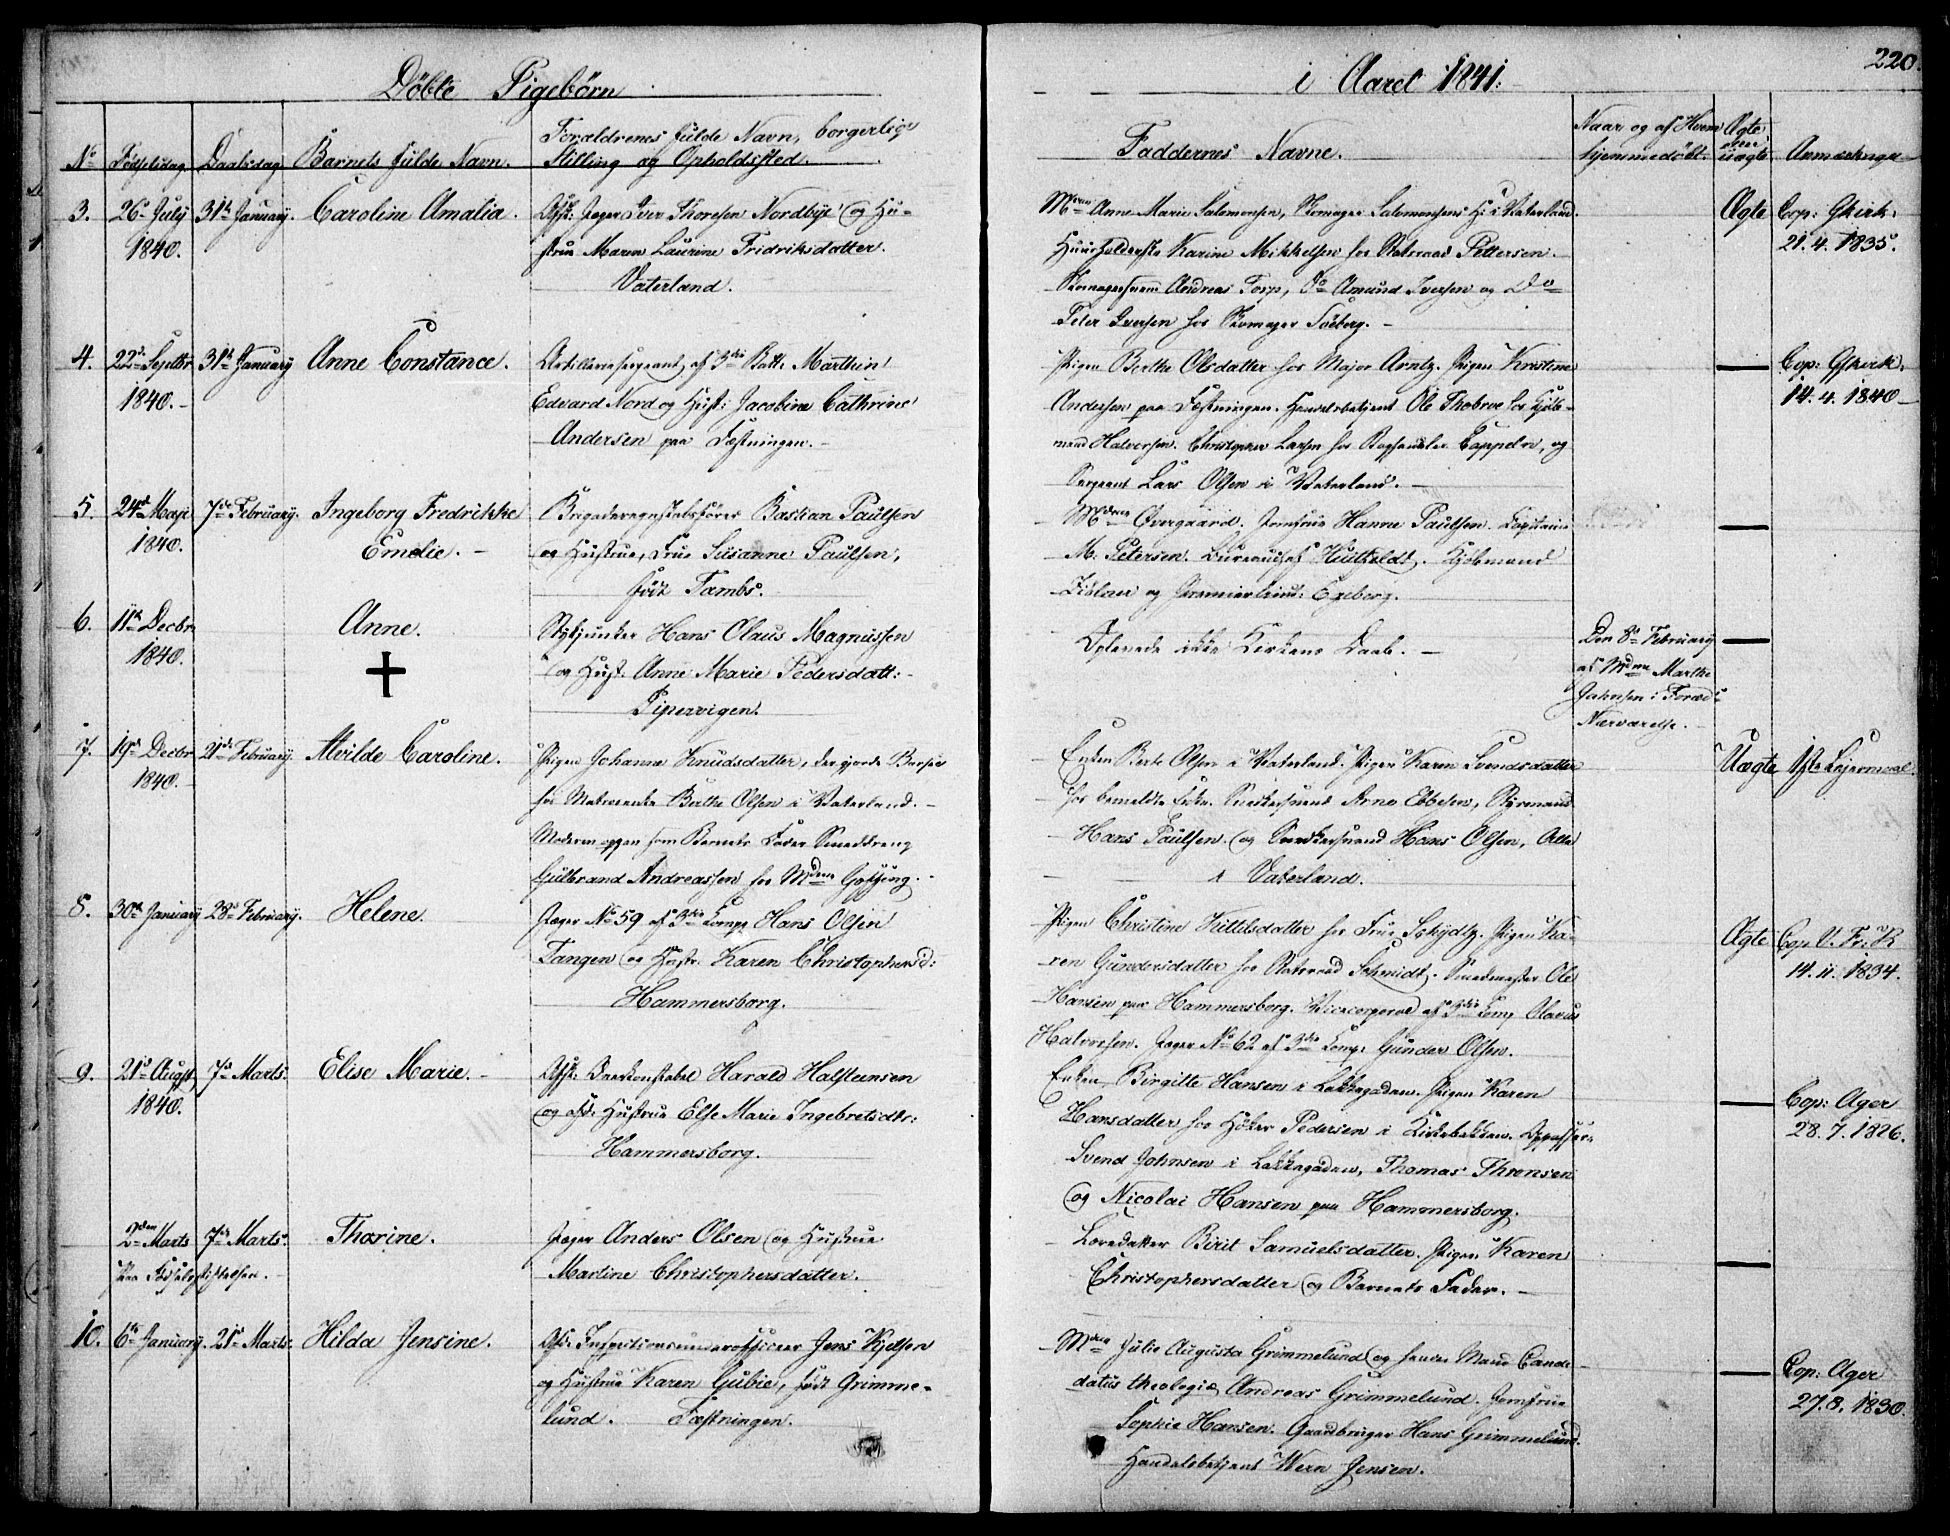 220.
Döbte Pigebörn
i Aaret 1841.
No Födselsdag Daabsdag Barnets fulde Navn. Forældrenes fulde Navn, borgerlige
Stilling og Opholdssted.
Faddernes Navne.
Naar og af Hvem
hjemmedöbt.
Ægte
eller
uægte
Anmærkninger
3. 26. July 31te January. Caroline Amalia. Afsk: Jæger Iver Thoresen Nordbye og Hu-
1840. strue Maren Laurine Fridriksdatter.
Vaterland.
Mdme Anne Marie Salomonsen, Skomager Salomonsens H: i Vaterland.
Huusholderske Karine Mikkelsen hos Statsraad Pettersen.
Skomagersvend Andreas Torp, Do Amund Iversen og Do
Peter Iversen hos Skomager Töeberg.
Ægte Cop: Gkirk:
21. 4. 1835.
4. 22de Septbr 31te January Anne Constance. Artilleriesergeant af 3die Batt: Marthin
1840. Edvard Nord og Hust: Jacobine Cathrine
Andersen paa Fæstningen.
Pigen Berthe Olsdatter hos Major Arntz. Pigen Kirstine
Andersen paa Fæstningen. Handelsbetjent Ole Thobroe hos Kjöb-
mand Halvorsen. Christopher Larsen hos Boghandler Cappelen, og
Sergeant Lars Olsen i Vaterland.
— Cop: Gkirk:
14. 4. 1840
5. 24de Maji 7de February. Ingeborg Fredrikke
1840. Emelie.
Brigaderegnskabsförer Bastian Paulsen
og Hustrue, Frue Susanne Paulsen,
födt Tambs.
Mdme Overgaard. Jomfrue Hanne Paulsen. Capitain
M. Petersen. Bureauchef Huitfeldt. Kjöbmand
og Premierlieut: Egeberg.
—
6. 11te Decbr Anne.
1840.
Stykjunker Hans Olaus Magnussen
og Hust: Anne Marie Pedersdatt:
Pipervigen.
Oplevede ikke Kirkens Daab.
Den 8de February
af Mdme Marthe
Jahnsen i Foræd:
Nærværelse.
—
7. 19de Decbr 21de February. Alvilde Caroline.
1840.
Pigen Johanne Knudsdatter, der gjorde Barsel
hos Madamenke Berthe Olsen i Vaterland.
Moderen opgav som Barnets Fader Smeddreng
Gulbrand Andreassen hos Mdme Gokjöng.
Enken Berte Olsen i Vaterland. Pigen Karen Svendsdatter
hos bemeldte Enke. Snedkersvend Arne Ebbesen, Styrmand
Hans Paulsen og Snedkersvend Hans Olsen, Alle
i Vaterland.
Uægte 1ste Leiermaal.
8. 30te January 28de February. Helene.
Jæger No 59 af 3die Comp. Hans Olsen
Tangen og Hustr. Karen Christophersd:
Hammersborg.
Pigen Christine Kittilsdatter hos Frue Schydtz. Pigen Ka-
ren Gundersdatter hos Statsraad Schmidt. Smedmester Ole
Hansen paa Hammersborg. Vicecorporal af 3die Comp Olavus
Halvorsen. Jæger No 62 af 3die Comp: Gunder Olsen.
Ægte Cop. V. Fr: K
14. 11. 1834.
9. 21de August 7de Marts. Elise Marie.
1840.
Afsk: Harald Halsteensen
og afsk: Hustrue Else Marie Ingebretsdtr:
Hammersborg.
Enken Birgitte Hansen i Lakkegaden. Pigen Karen
Hansdatter hos Höker Pedersen i Kirkebakken. Oppasser
Svend Johnsen i Lakkegaden, Thomas Thronsen
og Nicolai Hansen paa Hammersborg.
— Cop: Ager
28. 7. 1826.
2den Marts 7de Marts. Thorine.
Paa Födselsstiftelsen.
Jæger Anders Olsen og Hustrue
Martine Christophersdatter.
Læredatter Birit Samuelsdatter. Pigen Karen
Christophersdatter og Barnets Fader.
—
10. 6te January. 21de Marts. Hilda Jensine.
Afsk: Inspectionsunderofficeer Jens Kjelsen
og Hustrue Karen Gubie, födt Grimme-
lund. Fæstningen.
Mdme Julie Augusta Grimmelund og hendes Mand Candi-
datus theologiæ Andreas Grimmelund. Jomfrue
Sophie Hansen. Gaardbruger Hans Grimmelund.
Handelsbetjent Wern Jensen.
— Cop: Ager
27. 8. 1830.